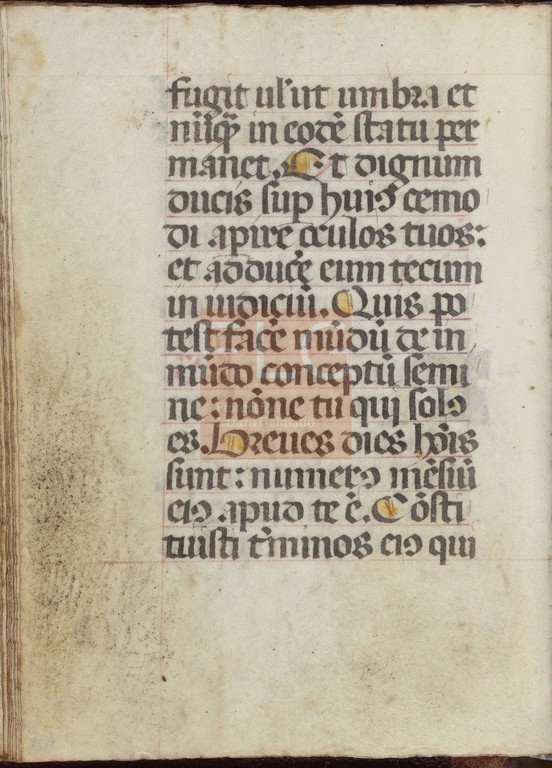 fugit ulut umbra et
nūq̄ in eodē statu per
manet. Et dignum
ducis sup huiꝰ cemo
di apire oculos tuos:
et adducē eum tecum
in iudiciū. Quis po
test facē mūdū de in
mūdo conceptū semi
ne: nōne tu qui solꝰ
es. Breues dies hōis
sunt: numerꝰ mēsiū
eiꝰ apud te ē. Cōsti
tuisti t̄minos eiꝰ qui